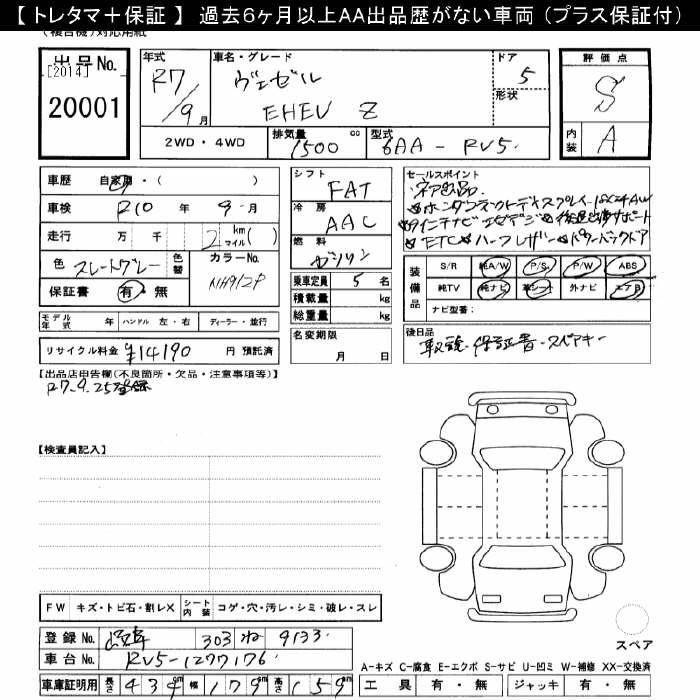 【 トレタマ＋保証 】 過去6ヶ月以上AA出品歴がない車両 (プラス保証付)
出品No.
[2014]
20001
年式 R7/9月
車名・グレード ヴェゼル
EHEV Z
ドア 5
形状
評価点 S
内装 A
2WD・4WD
排気量 1500 cc
型式 6AA-RV5
車歴 自家用・( )
車検 R10 年 9 月
走行 万 千 2 km マイル( )
色 スレートグレー
色替
カラーNo. NH912P
保証書 有・無
シフト FAT
冷房 AAC
燃料 ガソリン
乗車定員 5 名
積載量 kg
総重量 kg
セールスポイント
ETC ハーフレザー パワーバックドア
装備品
S/R 純A/W P/S P/W ABS
純TV 純ナビ 革シート 外ナビ エアB
ナビ型番：
モデル年式 年 ハンドル 左・右 ディーラー・並行
リサイクル料金 ¥14190 円 預託済
名変期限
月 日
後日品
取説・保証書・スペアキー
【出品店申告欄(不良箇所・欠品・注意事項等)】
R7.9.25登録
【検査員記入】
FW キズ・トビ石・割レX シート内装 コゲ・穴・汚レ・シミ・破レ・スレ
登録No. 303 ね 9133
車台No. RV5-1277176
車庫証明用 長さ 434cm 幅 179cm 高さ 159cm
スペア
A-キズ C-腐食 E-エクボ S-サビ U-凹ミ W-補修 XX-交換済
工具 有・無 ジャッキ 有・無